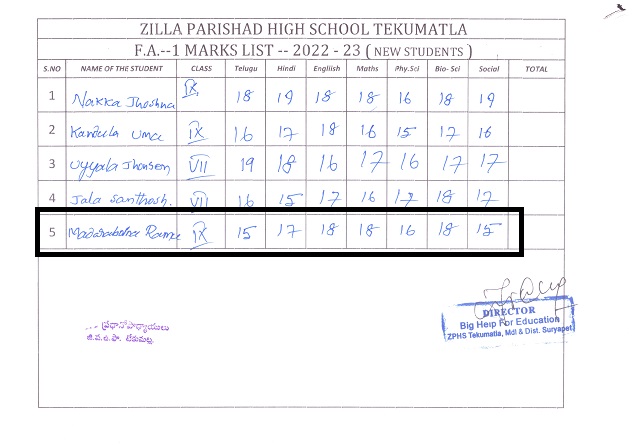 ZILLA PARISHAD HIGH SCHOOL TEKUMATLA
F.A.--1 MARKS LIST -- 2022 - 23 ( NEW STUDENTS )
S.NO NAME OF THE STUDENT CLASS Telugu Hindi English Maths Phy.Sci Bio- Sci Social TOTAL
1 Nakka Jhoshna IX 18 19 18 18 16 18 19
2 Kandula Uma IX 16 17 18 16 15 17 16
3 Uyyala Jhonsen VII 19 18 16 17 16 17 17
4 Jala Santhosh. VII 16 15 17 16 17 18 17
5 IX 15 17 18 18 16 18 15
ప్రధానోపాధ్యాయులు
జి.ప.ఉ.పా. టేకుమట్ల
DIRECTOR
Big Help For Education
ZPHS Tekumatla, Mdl & Dist. Suryapet